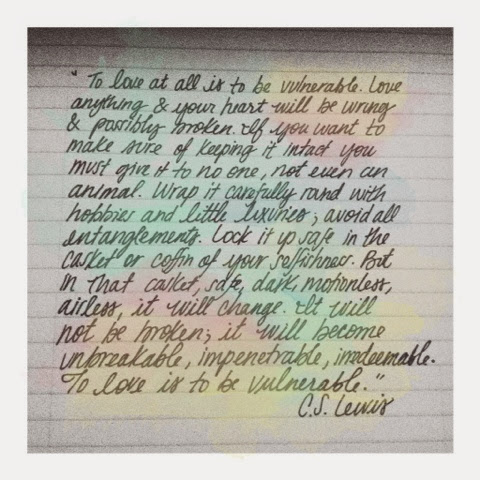 " To love at all is to be vulnerable. Love
anything & your heart will be wrung
& possibly broken. If you want to
make sure of keeping it intact you
must give it to no one, not even an
animal. Wrap it carefully rond with
hobbies and little luxuries; avoid all
entanglements. Lock it up safe in the
casket or coffin of your selfishness. But
in that casket, safe, dark, motionless,
airless, it will change. It will
not be broken; it will become
unbreakable, impenetrable, irredeemable.
To love is to be vulnerable."
C.S. Lewis